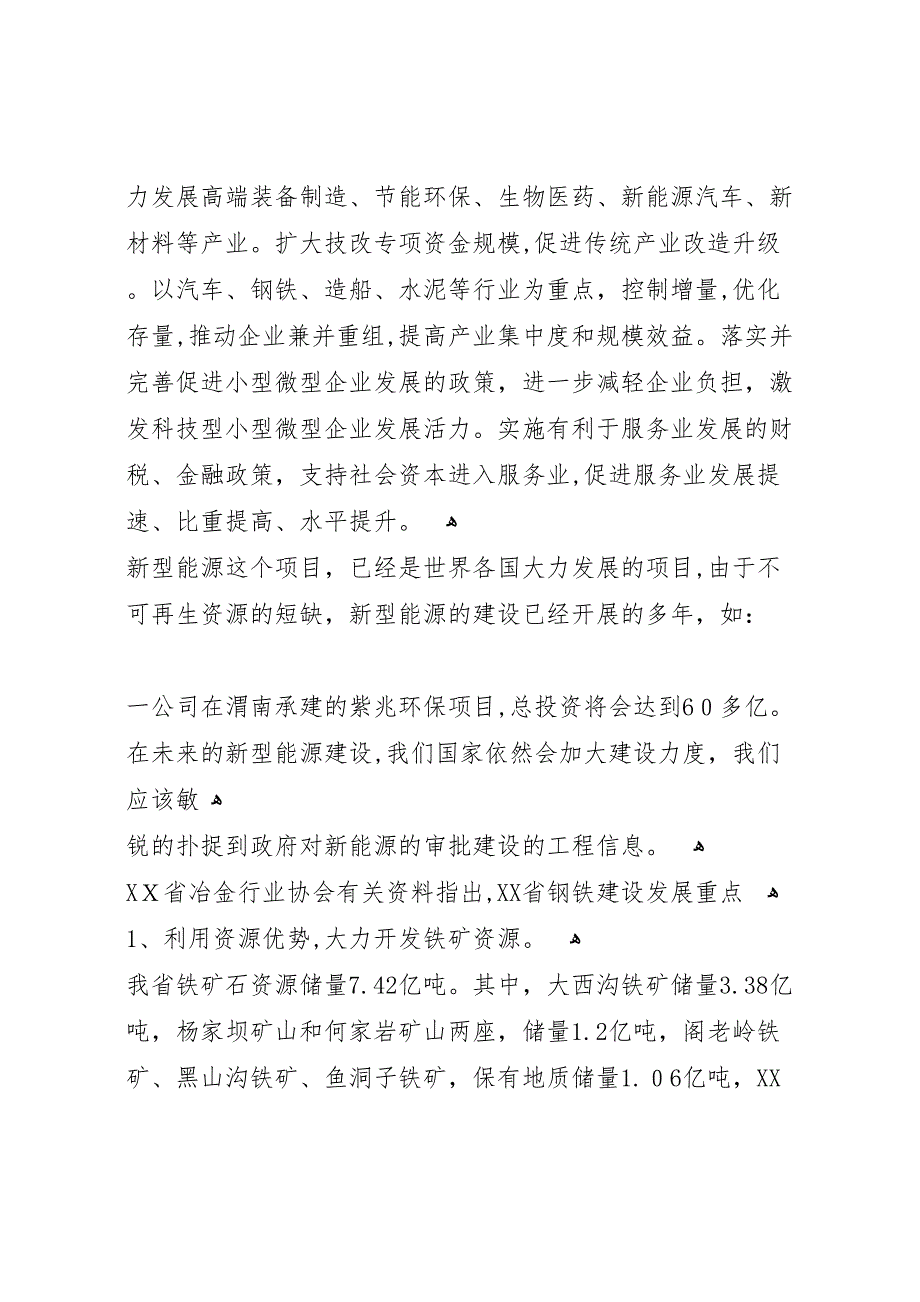 力发展高端装备制造、节能环保、生物医药、新能源汽车、新
材料等产业。扩大技改专项资金规模,促进传统产业改造升级
。以汽车、钢铁、造船、水泥等行业为重点，控制增量,优化
存量,推动企业兼并重组,提高产业集中度和规模效益。落实并
完善促进小型微型企业发展的政策，进一步减轻企业负担，激
发科技型小型微型企业发展活力。实施有利于服务业发展的财
税、金融政策，支持社会资本进入服务业,促进服务业发展提
速、比重提高、水平提升。 ﻫ
新型能源这个项目，已经是世界各国大力发展的项目,由于不
可再生资源的短缺，新型能源的建设已经开展的多年，如：
一公司在渭南承建的紫兆环保项目,总投资将会达到60多亿。
在未来的新型能源建设,我们国家依然会加大建设力度，我们
应该敏 ﻫ
锐的扑捉到政府对新能源的审批建设的工程信息。 ﻫ
XX省冶金行业协会有关资料指出,XX省钢铁建设发展重点 ﻫ
1、利用资源优势,大力开发铁矿资源。 ﻫ
我省铁矿石资源储量7.42亿吨。其中，大西沟铁矿储量3.38亿
吨，杨家坝矿山和何家岩矿山两座，储量1.2亿吨，阁老岭铁
矿、黑山沟铁矿、鱼洞子铁矿，保有地质储量1.06亿吨，XX